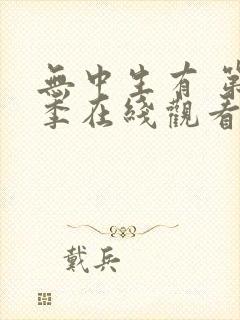 無中生有 第
季在綫觀看
戴兵